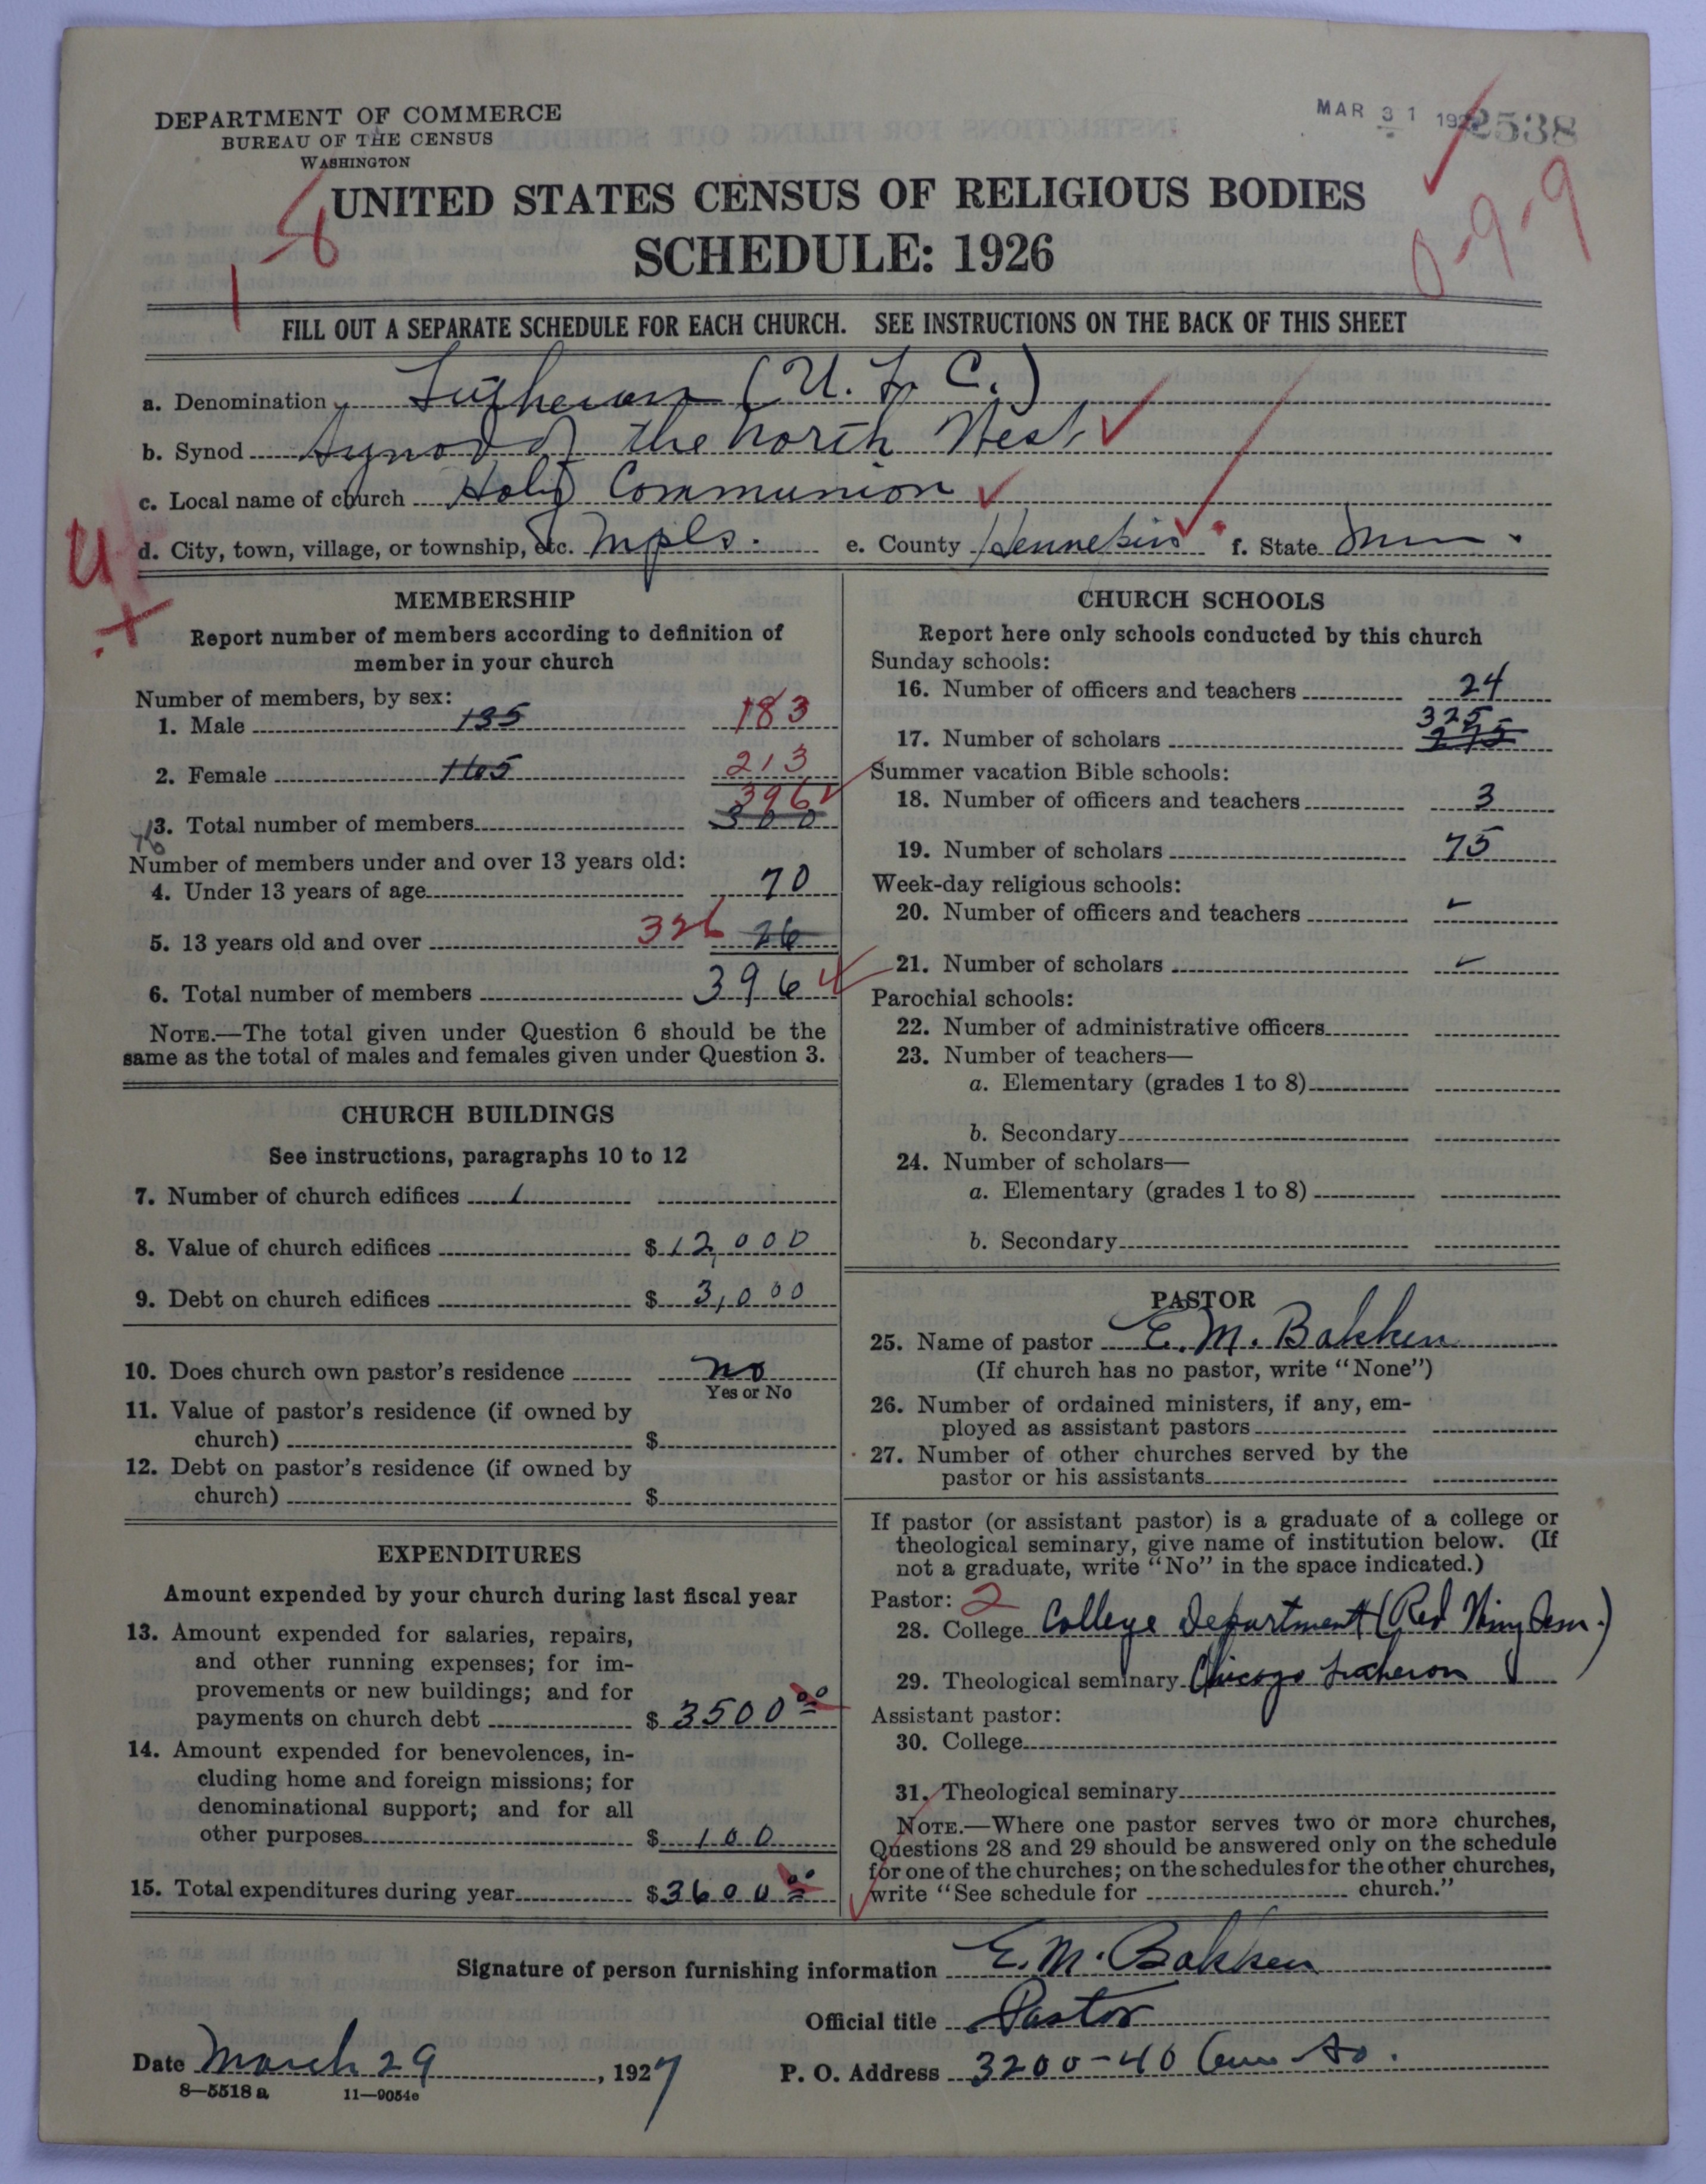 DEPARTMENT OF COMMERCE
BUREAU OF THE CENSUS
WASHINGTON
MAR 31 192
2538
1-8
0-9-9
UNITED STATES CENSUS OF RELIGIOUS BODIES
SCHEDULE: 1926
FILL OUT A SEPARATE SCHEDULE FOR EACH CHURCH. SEE INSTRUCTIONS ON THE BACK OF THIS SHEET
a. Denomination Lutheran (U. L. C.)
b. Synod Synod of the North West
c. Local name of church Holy Communion
d. City, town, village, or township, etc. Mpls. e. County Hennepin f. State Minn.
U
MEMBERSHIP
Report number of members according to definition of
member in your church
Number of members, by sex:
1. Male 135 183
2. Female 165 213
396
3. Total number of members 300
Number of members under and over 13 years old:
4. Under 13 years of age 70
5. 13 years old and over 326 26
6. Total number of members 396
NOTE.—The total given under Question 6 should be the
same as the total of males and females given under Question 3.
CHURCH BUILDINGS
See instructions, paragraphs 10 to 12
7. Number of church edifices 1
8. Value of church edifices $ 12,000
9. Debt on church edifices $ 3,000
10. Does church own pastor's residence no
Yes or No
11. Value of pastor's residence (if owned by
church) $
12. Debt on pastor's residence (if owned by
church) $
EXPENDITURES
Amount expended by your church during last fiscal year
13. Amount expended for salaries, repairs,
and other running expenses; for im-
provements or new buildings; and for
payments on church debt $ 3500 00
14. Amount expended for benevolences, in-
cluding home and foreign missions; for
denominational support; and for all
other purposes $ 100
15. Total expenditures during year $ 3600 00
CHURCH SCHOOLS
Report here only schools conducted by this church
Sunday schools:
16. Number of officers and teachers 24
325
17. Number of scholars
Summer vacation Bible schools:
18. Number of officers and teachers 3
19. Number of scholars 75
Week-day religious schools:
20. Number of officers and teachers
21. Number of scholars
Parochial schools:
22. Number of administrative officers
23. Number of teachers—
a. Elementary (grades 1 to 8)
b. Secondary
24. Number of scholars—
a. Elementary (grades 1 to 8)
b. Secondary
PASTOR
25. Name of pastor E. M. Bakken
(If church has no pastor, write "None")
26. Number of ordained ministers, if any, em-
ployed as assistant pastors
27. Number of other churches served by the
pastor or his assistants
If pastor (or assistant pastor) is a graduate of a college or
theological seminary, give name of institution below. (If
not a graduate, write "No" in the space indicated.)
Pastor: 2
28. College College Department (Red Wing Sem.)
29. Theological seminary Chicago Lutheran
Assistant pastor:
30. College
31. Theological seminary
NOTE.—Where one pastor serves two or more churches,
Questions 28 and 29 should be answered only on the schedule
for one of the churches; on the schedules for the other churches,
write "See schedule for church."
Signature of person furnishing information E. M. Bakken
Official title Pastor
Date March 29, 1927 P. O. Address 3200-40 Ave So.
8—5518 a 11—9054c